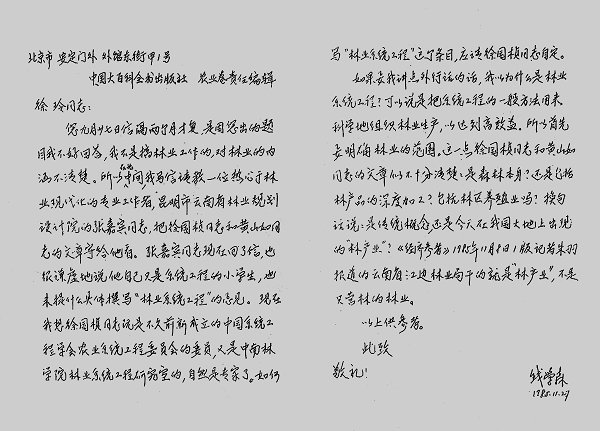 北京市 安定门外 外馆东街甲1号
中国大百科全书出版社 农业卷责任编辑
徐 玲同志:
您九月廿七日信隔两个月才复,是因您出的题
目我不好回答,我不是搞林业工作的,对林业的内
涵不清楚。所以中间我写信请教一位热心于林
业现代化的专业工作者,昆明市云南省林业规划
设计院的张嘉宾同志,把徐国祯同志和黄山如同
志的文章寄给他看。张嘉宾同志现在回了信,也
很谦虚地说他自己只是系统工程的小学生,也
未提什么具体撰写“林业系统工程”的意见。现在
我想徐国祯同志既是不久前新成立的中国系统工
程学会农业系统工程委员会的委员,又是中南林
学院林业系统工程研究室的,自然是专家了。如何
写“林业系统工程”这个条目,应该徐国祯同志自定。
如果要我讲点外行话的话,我以为什么是林业
系统工程?可以说是把系统工程的一般方法用来
科学地组织林业生产,以达到高效益。所以首先
要明确林业的范围。这一点徐国祯同志和黄山如
同志的文章似不十分清楚:是森林本身?还是包括
林产品的深度加工?包括林区养殖业吗?换句
话说:是传统概念还是今天在我国大地上出现
的“林产业”?《经济参考》1985年11月8日1版记者朱羽
报道的云南省江边林业局干的就是“林产业”,不是
只营林的林业。
以上供参考。
此致
敬礼!
钱学森
1985.11.27